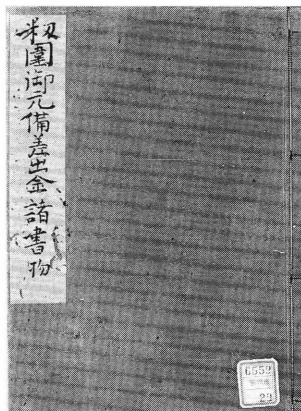 籾圍御元備差出金諸書物
6552
23